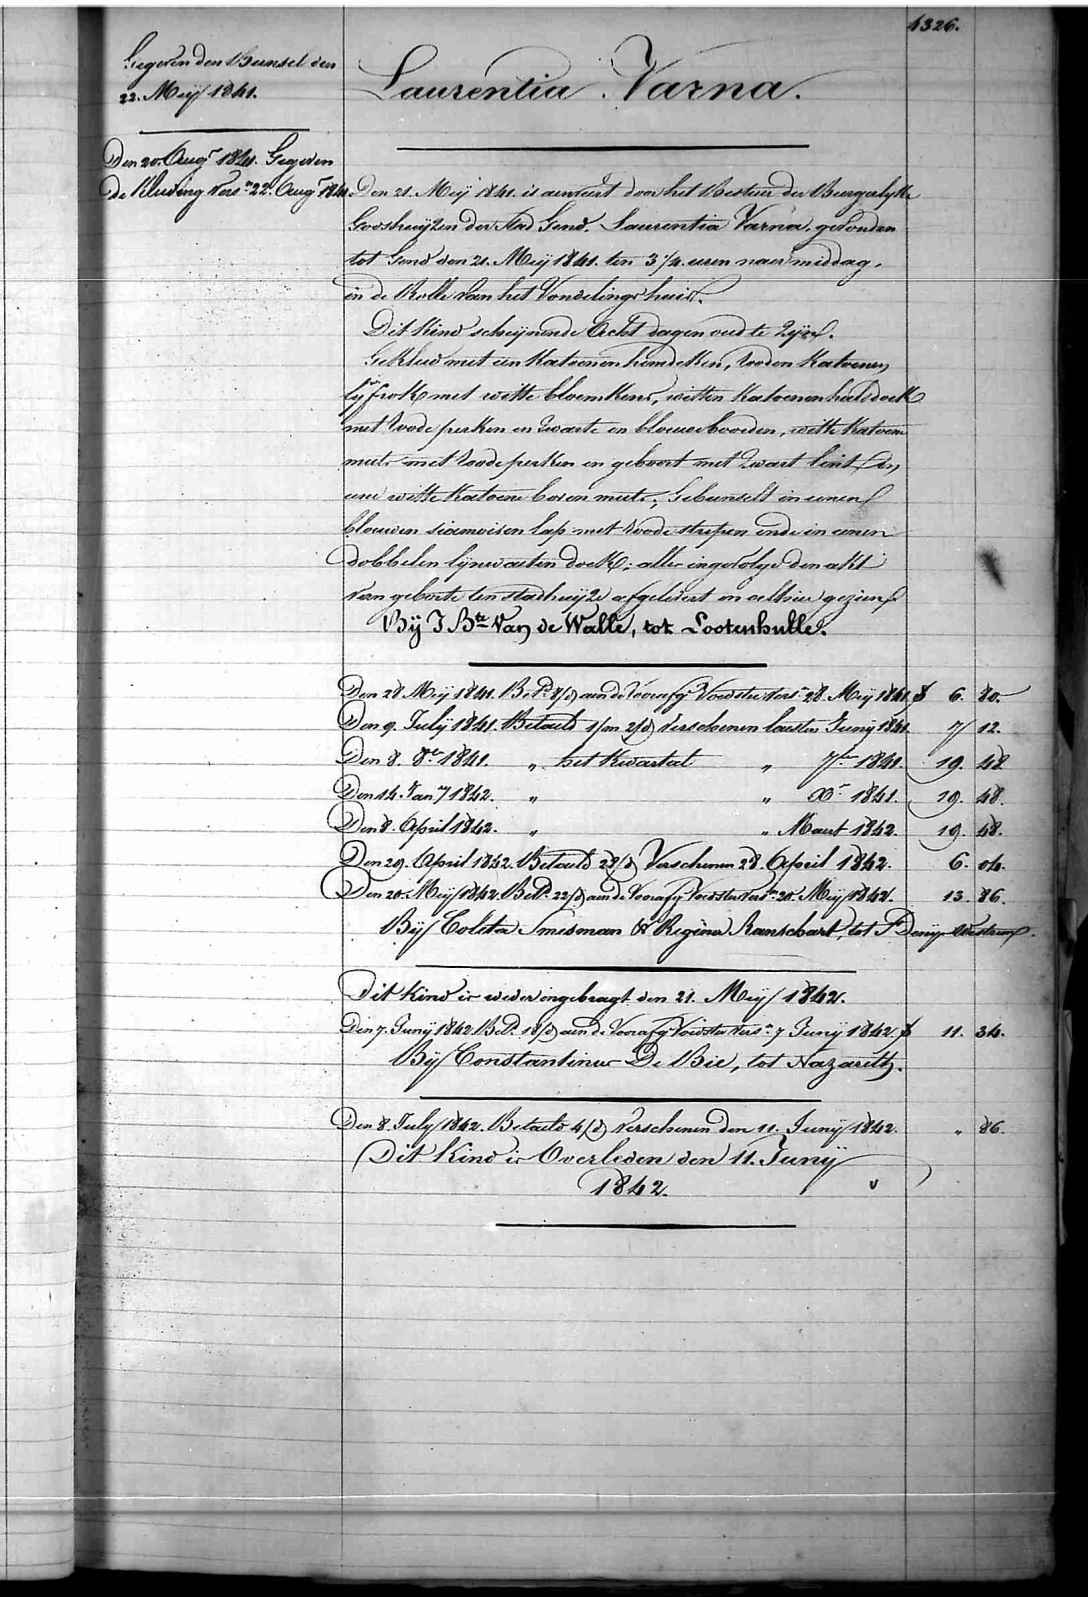 1326.
Gegeven den Bunsel den
22. Meij 1841.
Laurentia Varna.
Den 20. Augt 1841. Gegeven
de Kleeding vers.n 22. Augt 1841.
Den 21. Meij 1841. is aenveirt door het Bestier der Burgerlyke
Godshuijzen der stad Gend. Laurentia Varna. gevonden
tot Gend den 21. Meij 1841. ten 3 1/4. uren naer middag,
in de Rolle van het Vondelings huis.
Dit Kind schijnende Acht dagen oud te Zijn.
Gekleed met een Katoenen hemdeken, Rooden Katoenen
lijfrok met witte bloemkens, witten Katoenen halsdoek
met Roode perken en Zwarte en blauwe boorden, witte Katoene
muts met Roode perken en geboort met Zwart lint, en
eene witte Katoene boven muts; Gebunselt in eenen
blauwen siamoisen lap met Roode strepen ende in eenen
dobbelen lijnwaeten doek: alles ingevolge den akt
van geborte ten stadhuijze afgelevert en alhier gezien.
Bij J Bte Van de Walle, tot Lootenhulle.
Den 28 Meij 1841. Betd. 8/d aen de Voorafge Voedster vers.n 28. Meij 1841. f 6. 80.
Den 9. Julij 1841. Betaeld 1/m 2/d verschenen laesten Junij 1841. 7 12.
Den 8. 8er 1841. " het Kwartael " 7er 1841. 19. 48.
Den 14. Jany 1842. " " Xr 1841. 19. 48.
Den 8. April 1842. " " Maert 1842. 19. 48.
Den 29. April 1842. Betaeld 28/d Verschenen 28. April 1842. 6. 04.
Den 20. Meij 1842. Betd. 22/d aen de Voorafge Voedster vers.n 20. Meij 1842. 13. 86.
Bij Coleta Smesman & Regina Ranschart, tot St Denijs Westrem.
Dit Kind is weder ingebragt den 21. Meij 1842.
Den 7. Junij 1842. Betd. 18/d aen de Voorafge Voedster vers.n 7 Junij 1842. f 11. 34.
Bij Constantinus De Bie, tot Nazareth.
Den 8. Julij 1842. Betaeld 4/d verschenen den 11. Junij 1842. " 86.
Dit Kind is Overleden den 11. Junij
1842.